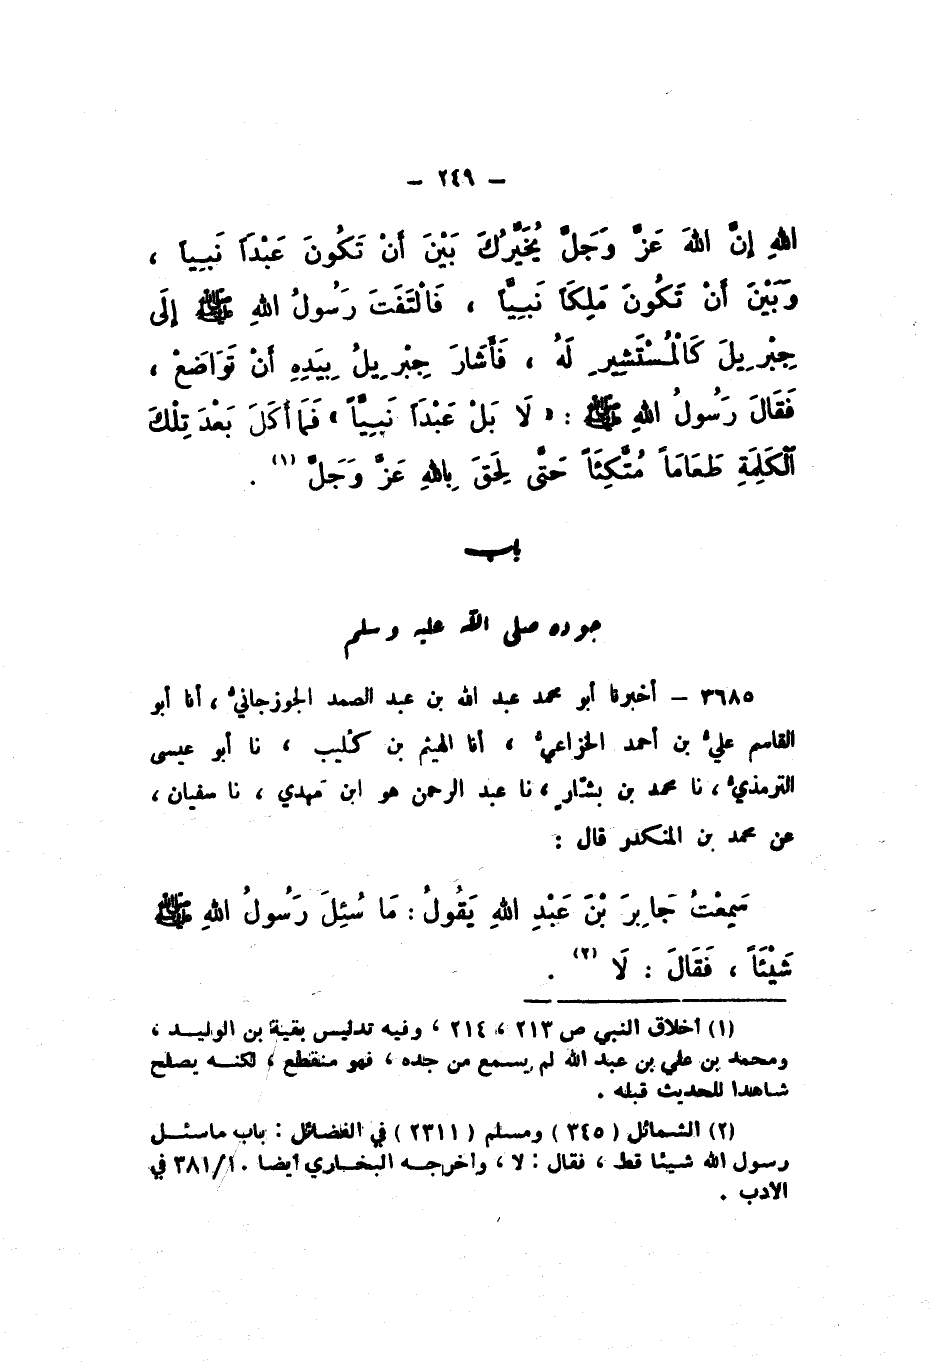 – ٢٤٩ –
اللهِ إِنَّ اللهَ عَزَّ وَجَلَّ يُخَيِّرُكَ بَيْنَ أَنْ تَكُونَ عَبْدَاً نَبِيَاً ،
وَبَيْنَ أَنْ تَكُونَ مَلِكَاً نَبِيَّاً ، فَالْتَفَتَ رَسُولُ اللهِ ﷺ إِلَى
جِبْرِيلَ كَالْمُسْتَشِيرِ لَهُ ، فَأَشَارَ جِبْرِيلُ بِيَدِهِ أَنْ تَوَاضَعْ ،
فَقَالَ رَسُولُ اللهِ ﷺ : « لَا بَلْ عَبْدَاً نَبِيَّاً » فَمَا أَكَلَ بَعْدَ تِلْكَ
ٱلْكَلِمَةِ طَعَامَاً مُتَّكِئَاً حَتَّى لَحِقَ بِاللهِ عَزَّ وَجَلَّ (١) .
باب
جوده صلى الله عليه وسلم
٣٦٨٥ – أخبرنا أبو محمد عبد الله بن عبد الصمد الجوزجانيُّ ، أنا أبو
القاسم عليُّ بن أحمد الخزاعيُّ ، أنا الهيثم بن كُليب ، نا أبو عيسى
الترمذيُّ ، نا محمد بن بشّار ، نا عبد الرحمن هو ابن مَهدي ، نا سفيان ،
عن محمد بن المنكدر قال :
سَمِعْتُ جَابِرَ بْنَ عَبْدِ اللهِ يَقُولُ : مَا سُئِلَ رَسُولُ اللهِ ﷺ
شَيْئَاً ، فَقَالَ : لَا (٢) .
(١) أخلاق النبي ص ٢١٣ ، ٢١٤ ، وفيه تدليس بقية بن الوليد ،
ومحمد بن علي بن عبد الله لم يسمع من جده ، فهو منقطع ، لكنه يصلح
شاهدا للحديث قبله .
(٢) الشمائل ( ٣٤٥ ) ومسلم ( ٢٣١١ ) في الفضائل : باب ماسئل
رسول الله شيئا قط ، فقال : لا ، وأخرجه البخاري أيضا ٣٨١/١٠ في
الأدب .